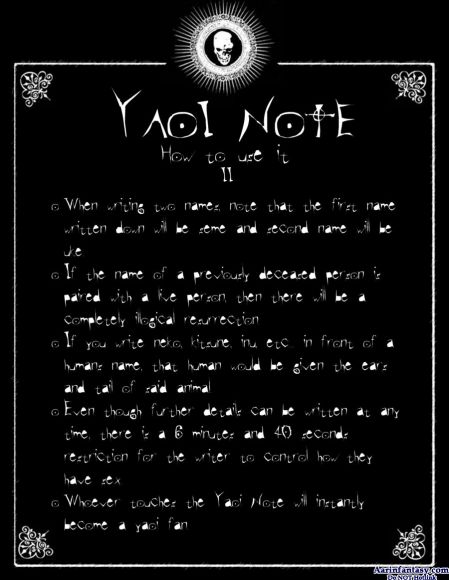 YAOI NOTE
How to use it
II
When writing two names, note that the first name
written down will be seme and second name will be
uke
If the name of a previously deceased person is
paired with a live person, then there will be a
completely illogical resurrection
If you write neko, kitsune, inu etc. in front of a
humans name, that human would be given the ears
and tail of said animal
Even though further details can be written at any
time, there is a 6 minutes and 40 seconds
restriction for the writer to control how they
have sex
Whoever touches the Yaoi Note will instantly
become a yaoi fan
Aarinfantasy.com
Do NOT Hotlink